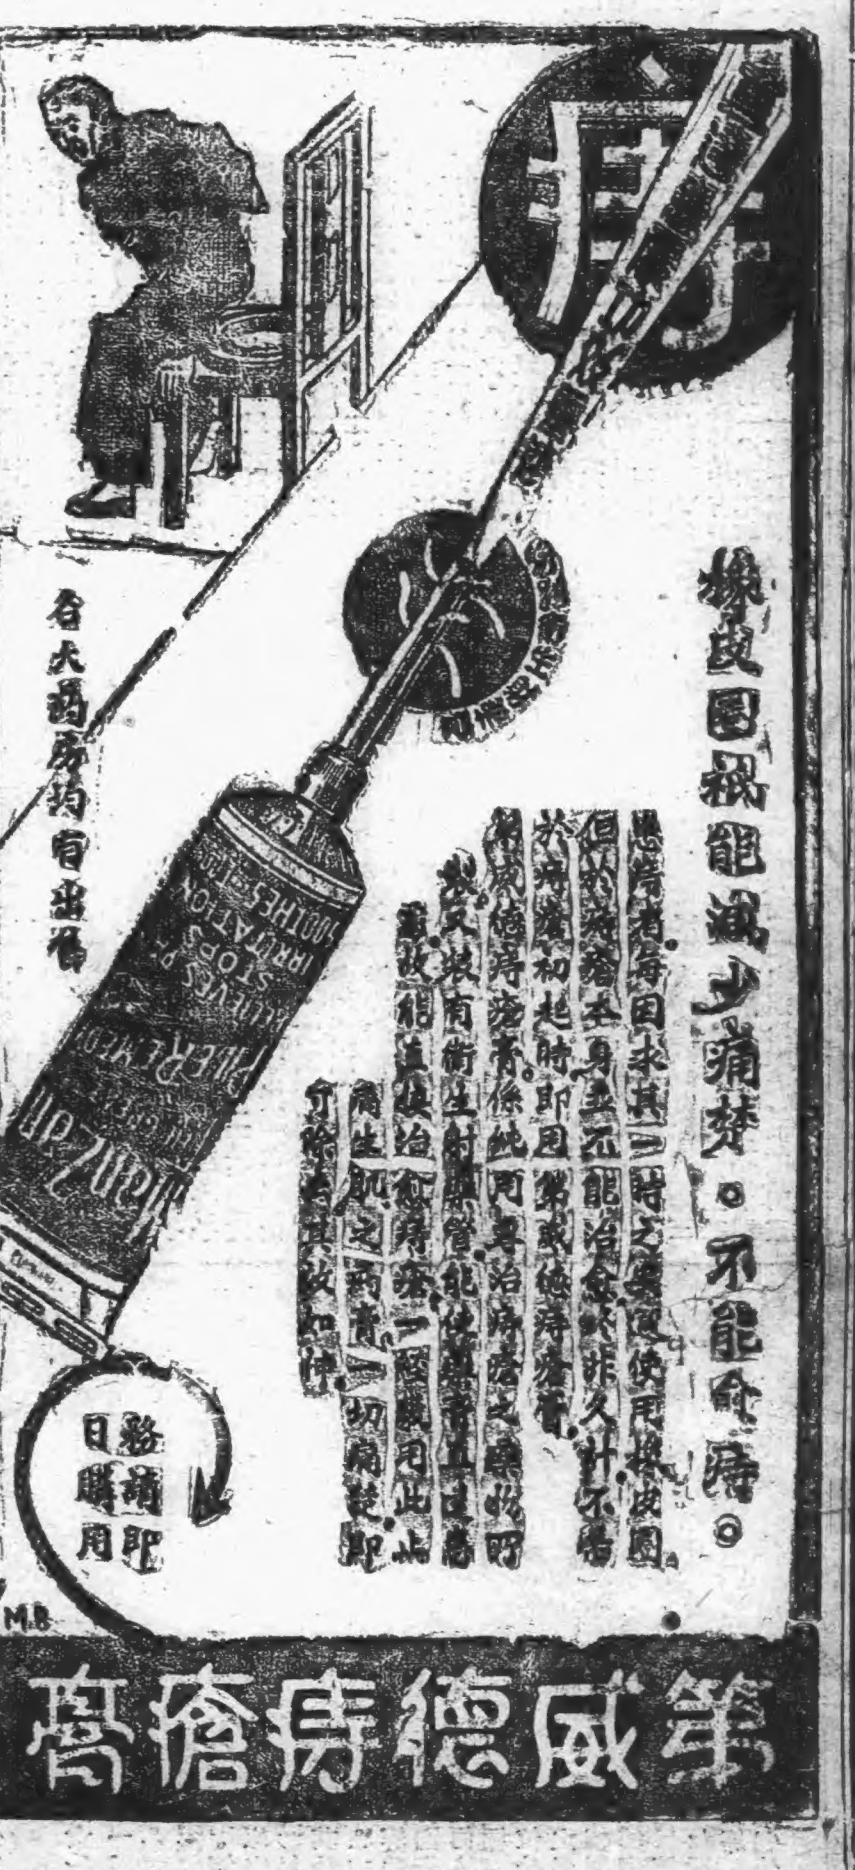 痔
橡皮圈祗能減少痛楚。不能愈痔。
患痔者每因求其一時之舒適使用橡皮圈。
但於痔瘡本身並不能治愈終非久計不若
於痔瘡初起時即用第威德痔瘡膏。
第威德痔瘡膏係純用專治痔瘡之藥物所
製。又裝有衛生射藥管能使藥膏直達患
處。故能直接治愈痔瘡。一經敷用此止
痛生肌之药膏。一切痛楚即
可除去其效如神。
各大药房均有出售
ManZan
PILE REMEDY
RELIEVES PAIN
STOPS
IRRITATION
SOOTHES
務請即
日購用
M.B
第威德痔瘡膏